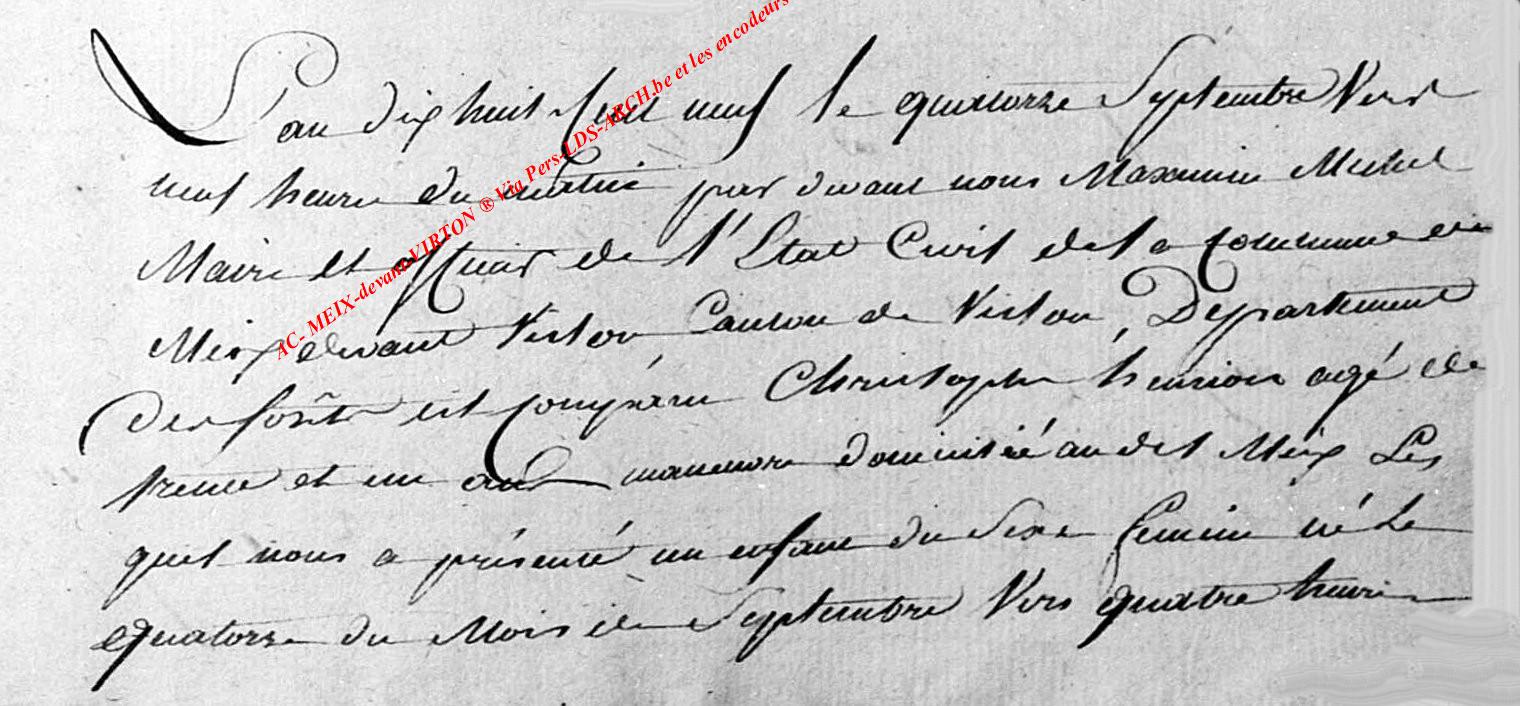 L'an dix huit Cent neuf le quatorze Septembre Vers
neuf heure du matin par devant nous Maximin Michel
Maire et officier de l'Etat Civil de la Commune de
Meix devant Virton Canton de Virton, Département
Des forêts est Comparu Christophe henrion agé de
trente et un ans manuvre domicilié au dit Meix Les
quel nous a présenté un enfant du Sexe feminin né le
quatorze du Mois de Septembre Vers quatre heures
AC- MEIX-devant-VIRTON ® Via Pers-LDS-ARCH.be et les encodeurs